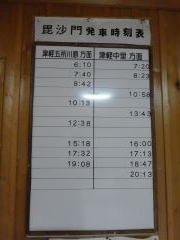 毘沙門発車時刻表
津軽五所川原 方面 津軽中里 方面
6:10 7:20
7:40 8:23
8:42
10:58
10:13
13:43
12:38
15:18 16:00
17:32 17:13
19:08 18:47
20:13